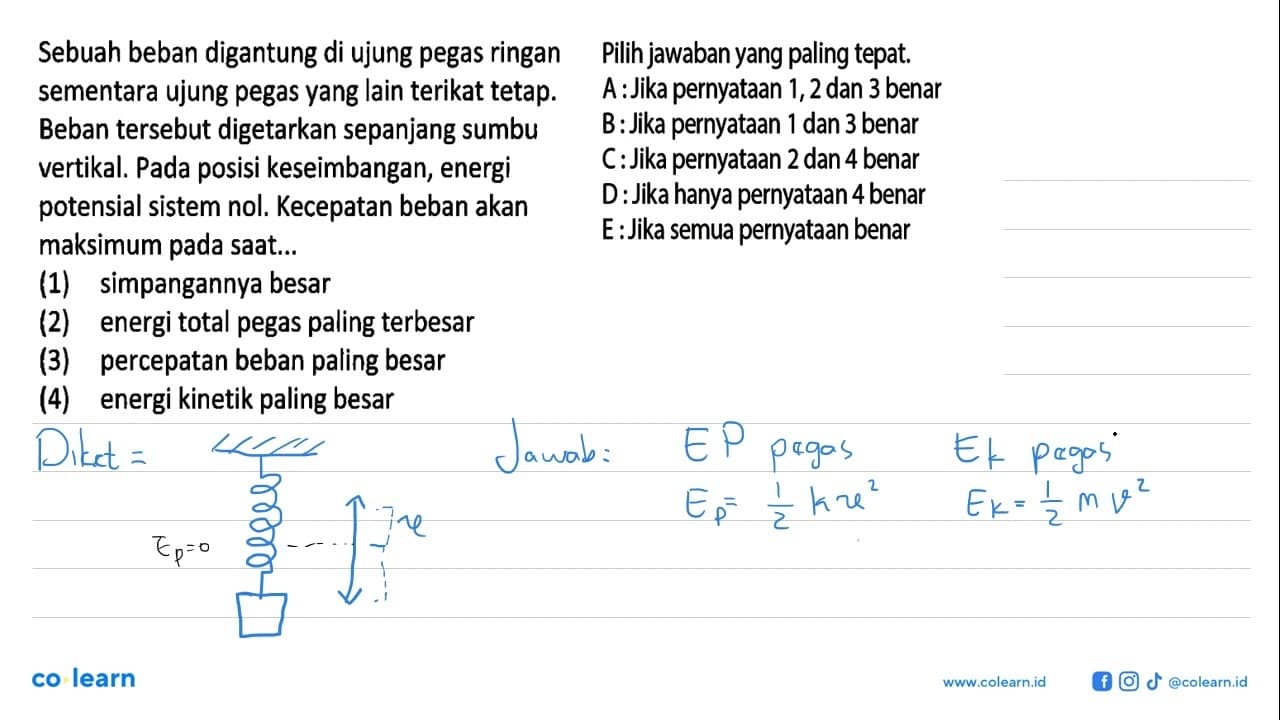 Sebuah beban digantung di ujung pegas ringan
sementara ujung pegas yang lain terikat tetap.
Beban tersebut digetarkan sepanjang sumbu
vertikal. Pada posisi keseimbangan, energi
potensial sistem nol. Kecepatan beban akan
maksimum pada saat...
(1) simpangannya besar
(2) energi total pegas paling terbesar
(3) percepatan beban paling besar
(4) energi kinetik paling besar
Pilih jawaban yang paling tepat.
A : Jika pernyataan 1, 2 dan 3 benar
B : Jika pernyataan 1 dan 3 benar
C : Jika pernyataan 2 dan 4 benar
D : Jika hanya pernyataan 4 benar
E : Jika semua pernyataan benar
Diket =
Ep=0
x
Jawab:
EP pegas
Ep = 1/2 kx²
Ek pegas
Ek = 1/2 m v²
co learn
www.colearn.id
@colearn.id